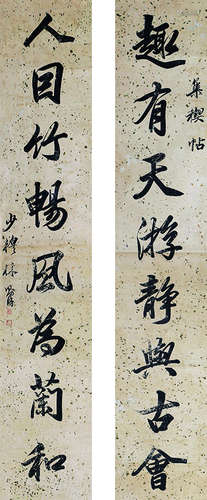 集禊帖
趣有天游靜與古會
人因竹暢風為蘭和
少穆林則徐